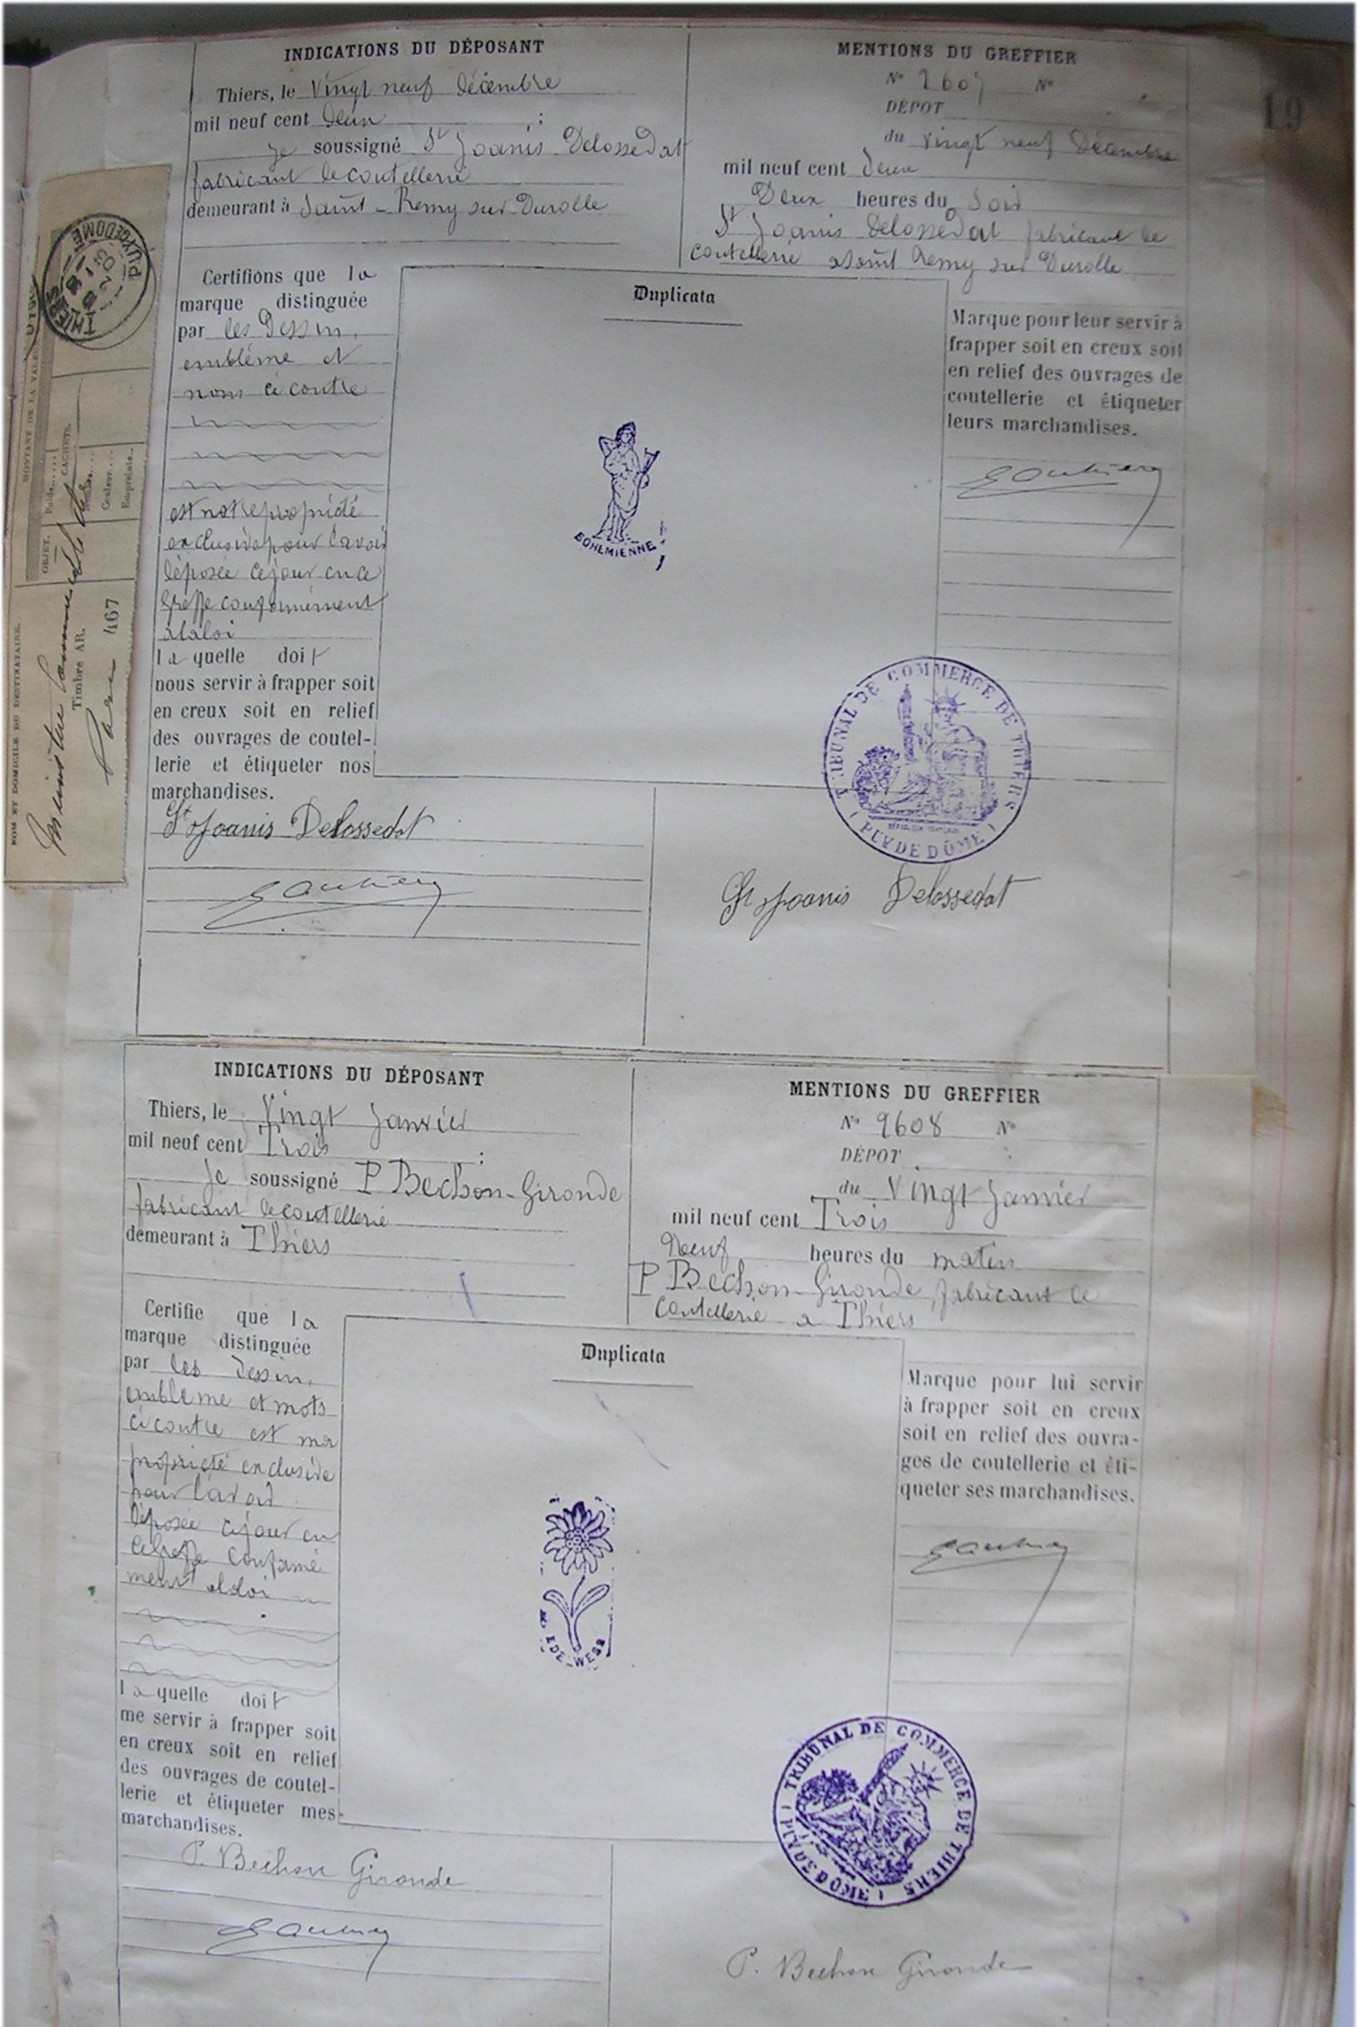 INDICATIONS DU DÉPOSANT
Thiers, le Vingt neuf décembre
mil neuf cent Deux :
Je soussigné St Joanis Delossedat
fabricant de coutellerie
demeurant à Saint-Remy sur Durolle
MENTIONS DU GREFFIER
N° 2607 N°
DÉPOT
du vingt neuf Décembre
mil neuf cent deux
Deux heures du Soir
St Joanis Delossedat fabricant de
coutellerie a Saint Remy sur Durolle
19
Certifions que la
marque distinguée
par les Dessin,
emblême et
noms ci contre
est notre propriété
exclusive pour l'avoir
déposée ce jour en ce
Greffe conformément
a la loi
la quelle doit
nous servir à frapper soit
en creux soit en relief
des ouvrages de coutel-
lerie et étiqueter nos
marchandises.
St Joanis Delossedat
Duplicata
BOHEMIENNE
Marque pour leur servir à
frapper soit en creux soit
en relief des ouvrages de
coutellerie et étiqueter
leurs marchandises.
TRIBUNAL DE COMMERCE DE THIERS
(PUY DE DÔME)
St Joanis Delossedat
THIERS
PUY-DE-DOME
MONTANT DE LA VALEUR
OBJET.
Poids
CACHETS.
Couleur
Empreinte
NOM ET DOMICILE DU DESTINATAIRE.
Ministre
Timbre AR.
Paris 467
INDICATIONS DU DÉPOSANT
Thiers, le Vingt Janvier
mil neuf cent Trois :
Je soussigné P Bechon-Gironde
fabricant de coutellerie
demeurant à Thiers
MENTIONS DU GREFFIER
N° 2608 N°
DÉPOT
du Vingt Janvier
mil neuf cent Trois
Neuf heures du matin
P Bechon Gironde, fabricant de
Coutellerie a Thiers
Certifie que la
marque distinguée
par les dessin,
emblème et mots
ci contre est ma
propriété exclusive
pour l'avoir
déposée ce jour en
ce Greffe conformé
ment a la loi
la quelle doit
me servir à frapper soit
en creux soit en relief
des ouvrages de coutel-
lerie et étiqueter mes
marchandises.
P. Bechon Gironde
Duplicata
EDELWESS
Marque pour lui servir
à frapper soit en creux
soit en relief des ouvra-
ges de coutellerie et éti-
queter ses marchandises.
TRIBUNAL DE COMMERCE DE THIERS
(PUY DE DÔME)
P. Bechon Gironde